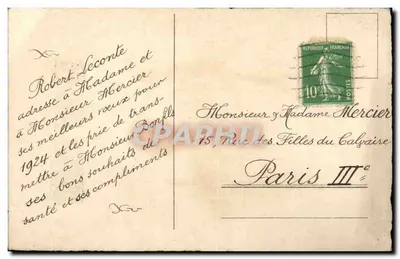 Robert Leconte
adresse à Madame et
à Monsieur Mercier
ses meilleurs vœux pour
1924 et les prie de trans-
mettre à Monsieur Bonfils
ses bons souhaits de
santé et ses compliments
REPUBLIQUE FRANCAISE
10c
Monsieur & Madame Mercier
15, Rue des Filles du Calvaire
Paris IIIe